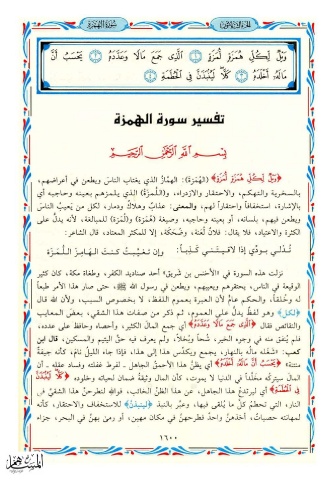 الجزء الثلاثون
سورة الهمزة
وَيْلٌ لِّكُلِّ هُمَزَةٍ لُّمَزَةٍ ١ الَّذِي جَمَعَ مَالًا وَعَدَّدَهُ ٢ يَحْسَبُ أَنَّ
مَالَهُ أَخْلَدَهُ ٣ كَلَّا لَيُنبَذَنَّ فِي الْحُطَمَةِ ٤
تفسير سورة الهمزة
بسم الله الرحمن الرحيم
﴿وَيْلٌ لِّكُلِّ هُمَزَةٍ لُّمَزَةٍ﴾ (الهُمَزَة): الهمَّاز الذي يغتاب الناسَ ويطعن في أعراضهم،
بالسخرية والتهكم، والاحتقار والازدراء، و(اللُّمزَة) الذي يلمزهم بعينه وحاجبه أي
بالإشارة، استخفافاً واحتقاراً لهم، والمعنى: عذابٌ وهلاك ودمار، لكل من يَعيبُ الناسَ
ويطعن فيهم، بلسانه، أو بعينه وحاجبه، وصيغة (هُمَزة) و(لُمَزة) للمبالغة، لأنه يدلُّ على
الكثرة والاعتياد، فلا يقال: فلانٌ لُعَنة، وضُحَكة، إلا للمكثر المعتاد، قال الشاعر:
تُدلي بودِّي إذا لاقيتني كذباً وإن تغيَّبتُ كنتَ الهامزَ اللُّمَزَة
نزلت هذه السورة في «الأخنس بن شَريق» أحد صناديد الكفر، وطغاة مكة، كان كثير
الوقيعة في الناس، يحتقرهم ويعيبهم، ويطعن في رسول الله ﷺ، حتى صار هذا الأمر طبعاً
له وخُلُقاً، والحكم عامٌّ لأن العبرة بعموم اللفظ، لا بخصوص السبب، ولأن الله قال
﴿لكل﴾ وهو لفظٌ يدلُّ على العموم، ثم ذكر من صفات هذا الشقي، بعض المعايب
والنقائص فقال ﴿الَّذِي جَمَعَ مَالًا وَعَدَّدَهُ﴾ أي جمع المالَ الكثير، وأحصاه وحافظ على عدده،
فلم يُنفق منه في وجوه الخير، شُحاً وبُخلاً، ولم يعرف فيه حقَّ اليتيم والمسكين، قال ابن
كعب: شغله ماله بالنهار، يجمع ويكدِّس هذا إلى هذا، فإذا جاء الليلُ نام، كأنه جيفة
منتنة ﴿يَحْسَبُ أَنَّ مَالَهُ أَخْلَدَهُ﴾ أي يظنُّ هذا الأحمقُ الجاهل، لفرط غفلته وفساد عقله، أن
المالَ سيتركه مخلَّداً في الدنيا لا يموت، كأن المال وثيقةُ ضمان لحياته وخلوده ﴿كَلَّا لَيُنبَذَنَّ
فِي الْحُطَمَةِ﴾ أي ليرتدع هذا الجاهل، عن هذا الظنّ الخائب، فوالله لتطرحنَّ هذا الشقي في
النار، التي تحطم كلَّ ما يلقى فيها، وعبَّر بالنبذ ﴿لينبذن﴾ للاستخفاف والاحتقار، كأنه
لمهانته حصيات، أخذهنَّ واحدٌ فطرحهنَّ في مكان مهين، أو رمى بهنَّ في البحر، جزاء
١٦٠٠